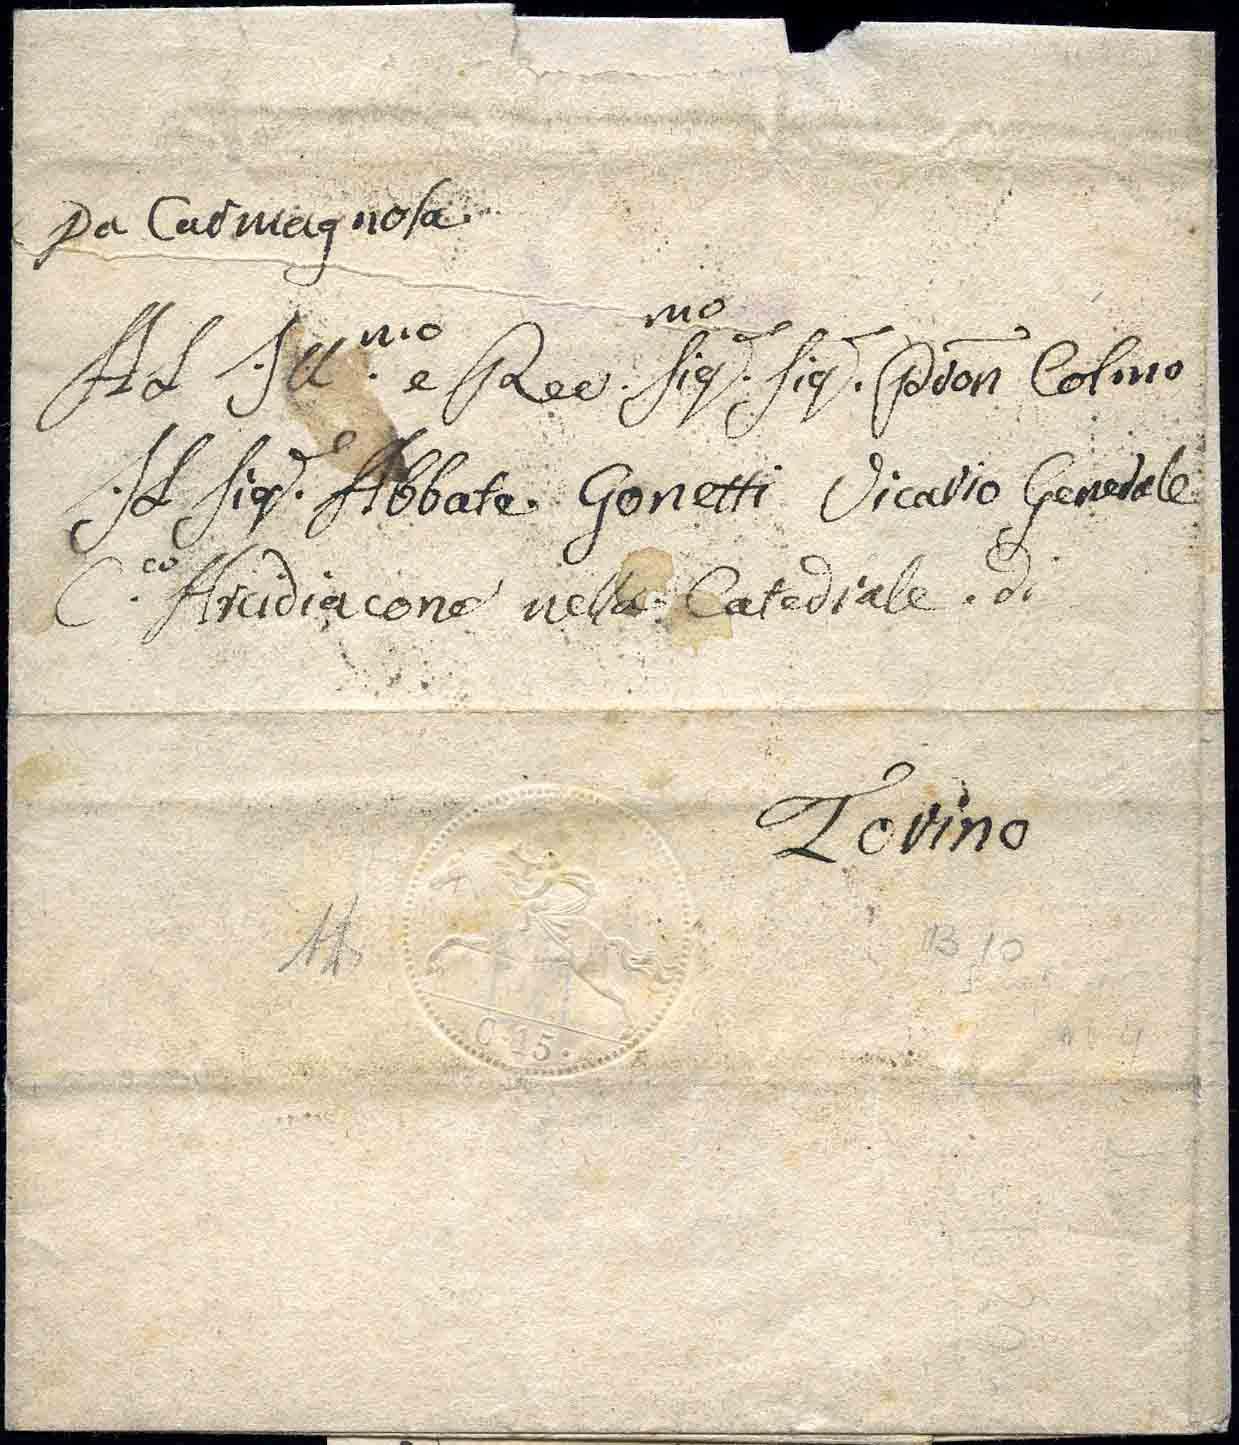 Da Carmagnola.
Al Ill.mo e Rev.mo Sig.r Sig.r Pron Colmo
Il Sig.r Abbate Gonetti Vicario Generale
C.co Arcidiacono nella Catedrale di
Torino
B 10
C. 15.